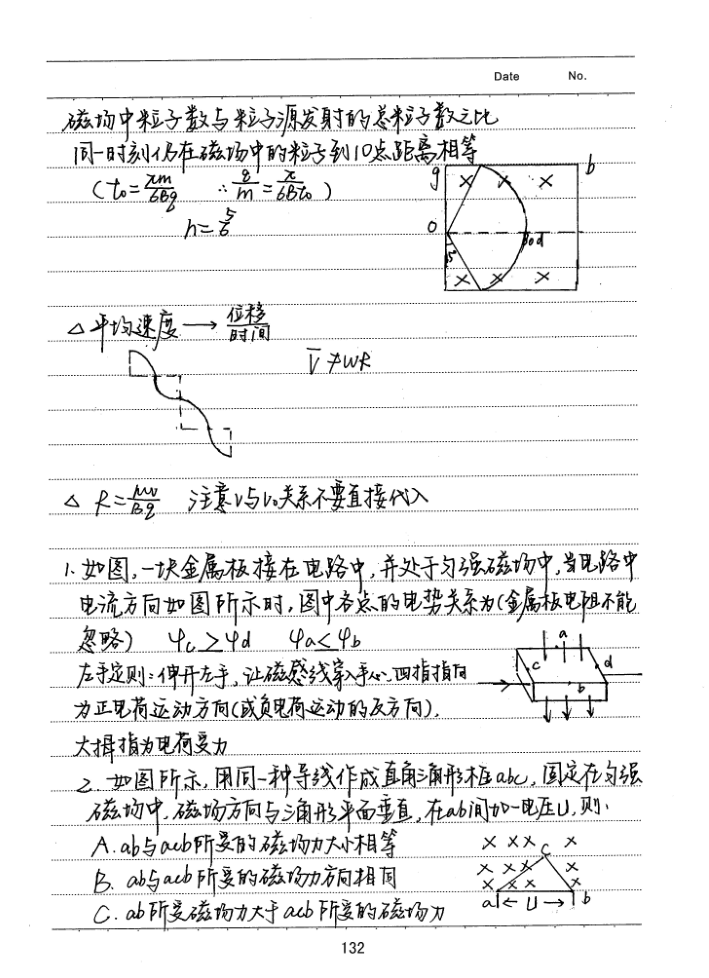 Date No.
磁场中粒子数与粒子源发射的总粒子数之比
同一时刻仍在磁场中的粒子到O点距离相等
(t₀=πm/6Bq ∴q/m=π/6Bt₀)
n=5/6
g b
× × ×
O d
× × ×
△平均速度→位移/时间
V̄≠ωR
△ R=mv/Bq 注意v与v₀关系不要直接代入
1.如图,一块金属板接在电路中,并处于匀强磁场中,当电路中
电流方向如图所示时,图中各点的电势关系为(金属板电阻不能
忽略) φc>φd φa<φb
左手定则:伸开左手,让磁感线穿入手心,四指指向
为正电荷运动方向(或负电荷运动的反方向),
大拇指为电荷受力
a
c d
b
2.如图所示,用同一种导线作成直角三角形框abc,固定在匀强
磁场中,磁场方向与三角形平面垂直,在ab间加一电压U,则:
A.ab与acb所受的磁场力大小相等
B.ab与acb所受的磁场力方向相同
C.ab所受磁场力大于acb所受的磁场力
× × × c ×
× × × ×
× × × ×
a ← U → b
132